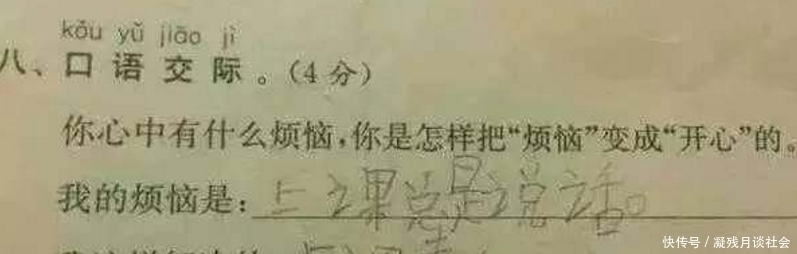 kǒu yǔ jiāo jì
八、口语交际。(4分)
你心中有什么烦恼,你是怎样把“烦恼”变成“开心”的。
我的烦恼是:上课总是说话。
快传号/凝残月谈社会